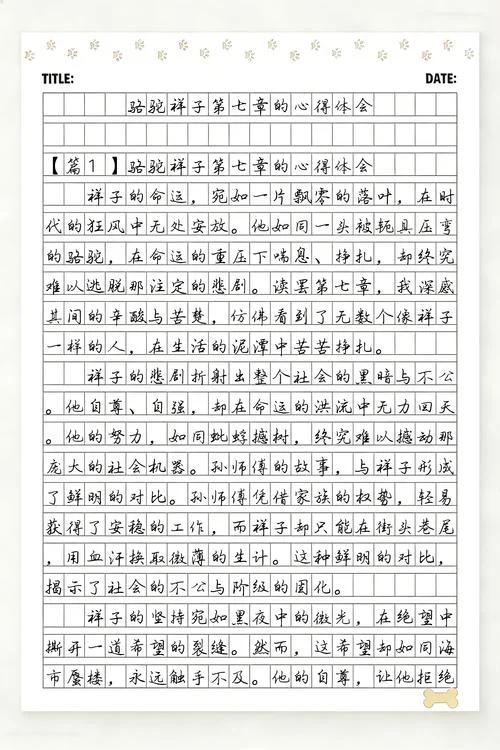 TITLE:
DATE:
骆驼祥子第七章的心得体会
【篇1】骆驼祥子第七章的心得体会
祥子的命运，宛如一片飘零的落叶，在时
代的狂风中无处安放。他如同一头被轭具压弯
的骆驼，在命运的重压下喘息、挣扎，却终究
难以逃脱那注定的悲剧。读罢第七章，我深感
其间的辛酸与苦楚，仿佛看到了无数个像祥子
一样的人，在生活的泥潭中苦苦挣扎。
祥子的悲剧折射出整个社会的黑暗与不公
。他自尊、自强，却在命运的洪流中无力回天
。他的努力，如同蚍蜉撼树，终究难以撼动那
庞大的社会机器。孙师傅的故事，与祥子形成
了鲜明的对比。孙师傅凭借家族的权势，轻易
获得了安稳的工作，而祥子却只能在街头巷尾
，用血汗换取微薄的生计。这种鲜明的对比，
揭示了社会的不公与阶级的固化。
祥子的坚持宛如黑夜中的微光，在绝望中
撕开一道希望的裂缝。然而，这希望却如同海
市蜃楼，永远触手不及。他的自尊，让他拒绝